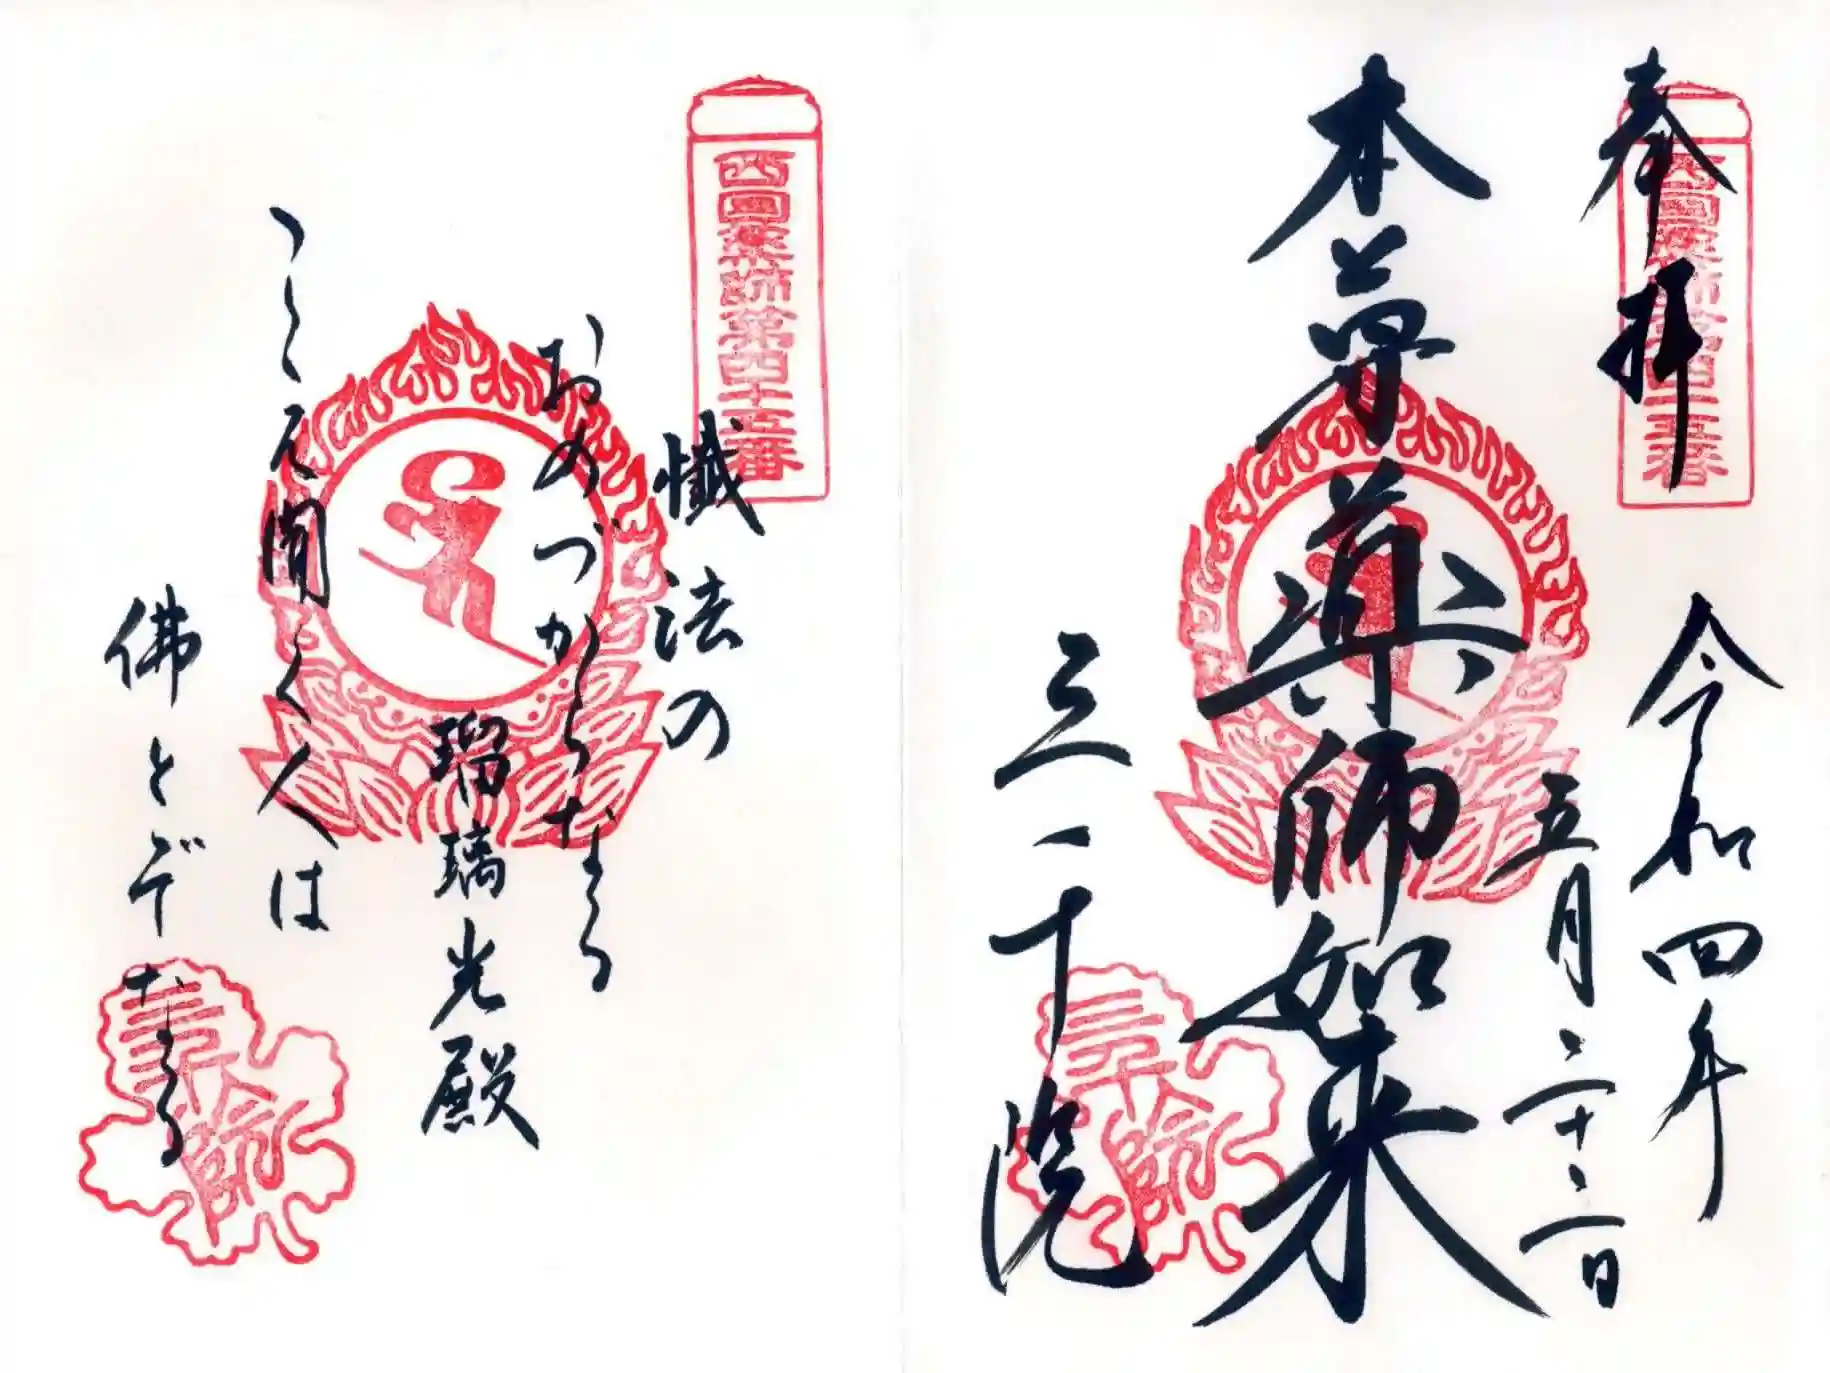 奉拝
西国薬師第四十五番
令和四年
五月二十二日
本尊
薬師如来
三千院
西国薬師第四十五番
懺法の
おのづからなる
瑠璃光殿
こゝに聞く人は
佛とぞなる